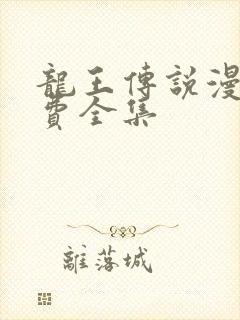 龍王傳說漫
費全集
離落城